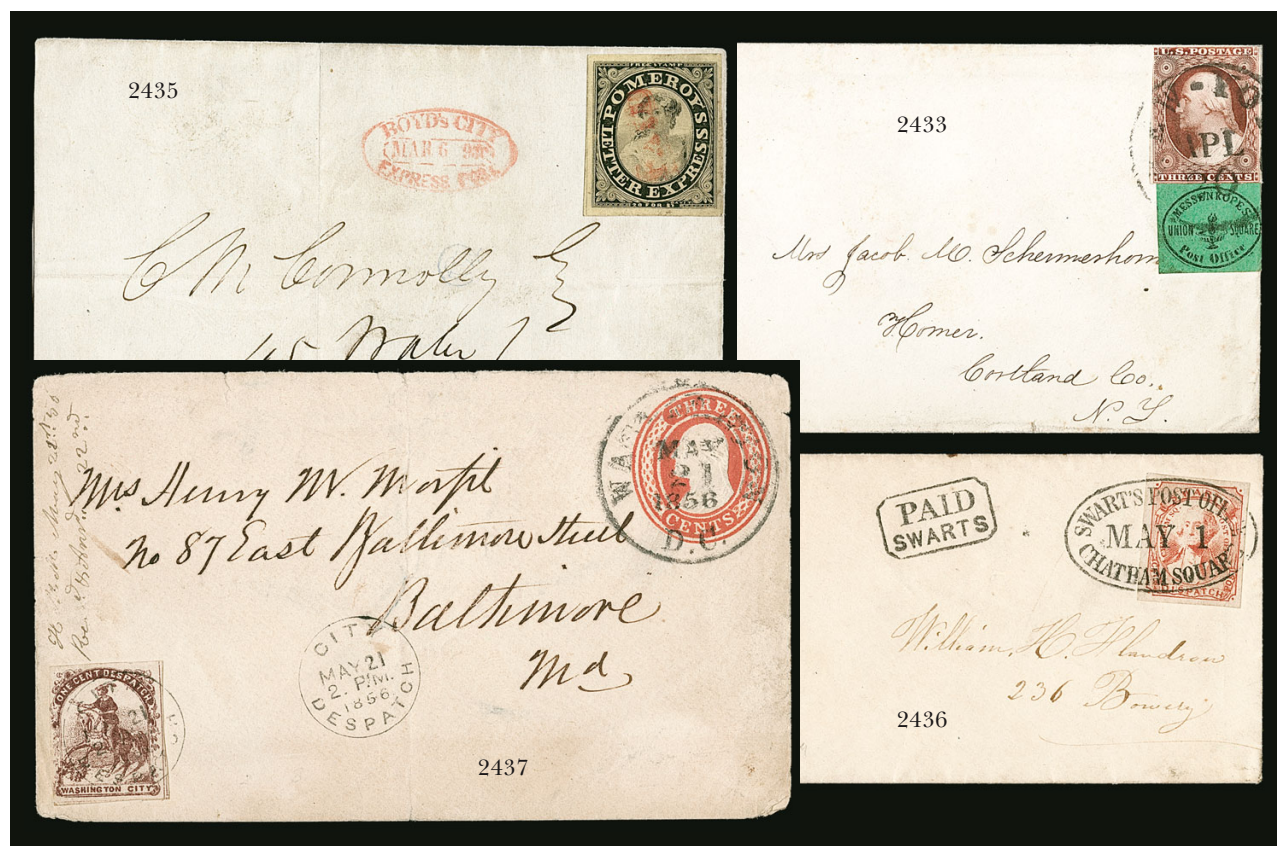 2435
BOYD'S CITY
MAR 6
EXPRESS POST
FREE STAMP
POMEROY'S
LETTER EXPRESS
20 FOR $1
C M Connolly Esq
45 Water
2433
U.S. POSTAGE
APL
THREE CENTS
MESSENKOPE'S
UNION SQUARE
Post Office
Mrs Jacob. M. Schermerhorn
Homer.
Cortland Co.
N. Y.
THREE
CENTS
WASHINGTON
MAY
21
1856
D.C.
Mrs Henry M. Morfit
No 87 East Baltimore Street
Baltimore
Md
CITY
MAY 21
2. P.M.
1856
DESPATCH
ONE CENT DESPATCH
WASHINGTON CITY
2437
PAID
SWARTS
SWART'S POST OFFICE
MAY 1
CHATHAM SQUARE
DISPATCH
William. H. Flandrow
236 Bowery
2436